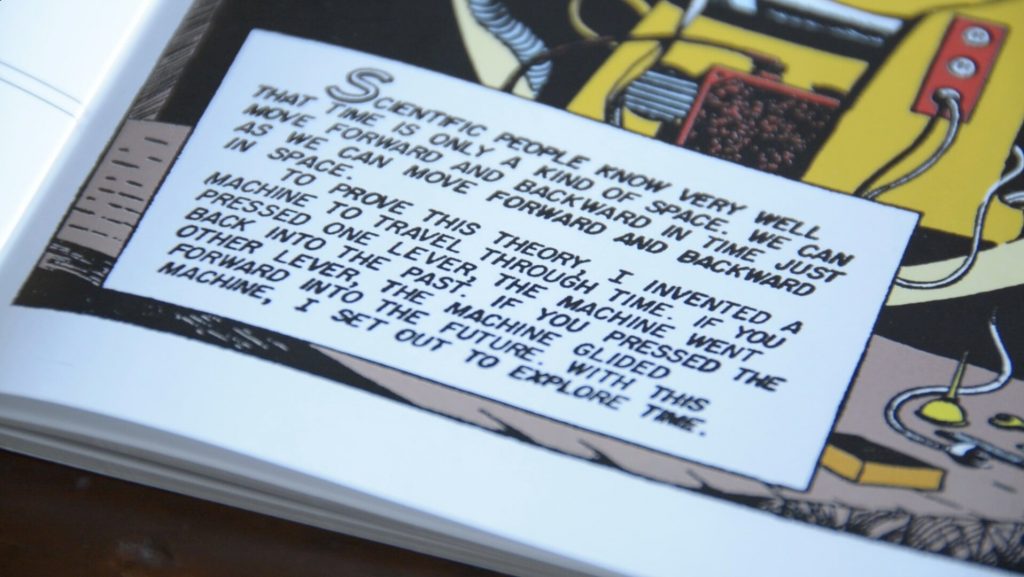 SCIENTIFIC PEOPLE KNOW VERY WELL
THAT TIME IS ONLY A KIND OF SPACE. WE CAN
MOVE FORWARD AND BACKWARD IN TIME JUST
AS WE CAN MOVE FORWARD AND BACKWARD
IN SPACE.
TO PROVE THIS THEORY, I INVENTED A
MACHINE TO TRAVEL THROUGH TIME. IF YOU
PRESSED ONE LEVER, THE MACHINE WENT
BACK INTO THE PAST. IF YOU PRESSED THE
OTHER LEVER, THE MACHINE GLIDED
FORWARD INTO THE FUTURE. WITH THIS
MACHINE, I SET OUT TO EXPLORE TIME.